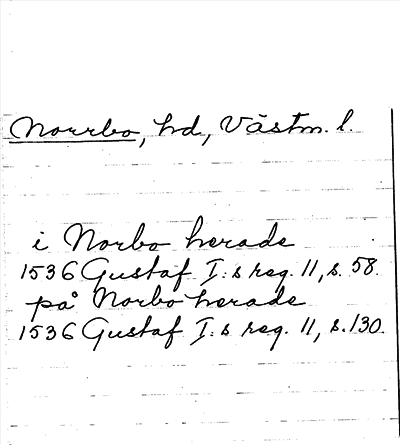 Norrbo, hd, Västm. l.
i Norbo herade
1536 Gustaf I:s reg. 11, s. 58.
på Norbo herade
1536 Gustaf I:s reg. 11, s. 130.